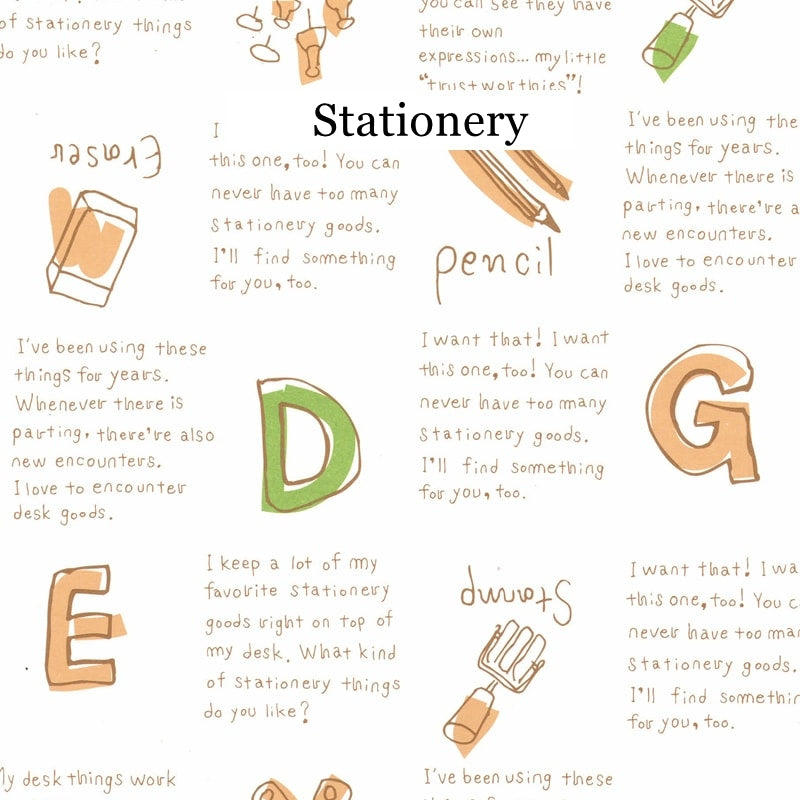 of stationery things
do you like?
you can see they have
their own
expressions... my little
"trust worthies"!
Stationery
Eraser
I
this one, too! You can
never have too many
stationery goods.
I'll find something
for you, too.
pencil
I've been using the
things for years.
Whenever there is
parting, there're a
new encounters.
I love to encounter
desk goods.
I've been using these
things for years.
Whenever there is
parting, there're also
new encounters.
I love to encounter
desk goods.
D
I want that! I want
this one, too! You can
never have too many
stationery goods.
I'll find something
for you, too.
G
E
I keep a lot of my
favorite stationery
goods right on top of
my desk. What kind
of stationery things
do you like?
Stamp
I want that! I wa
this one, too! You c
never have too mar
stationery goods.
I'll find somethin
for you, too.
My desk things work
I've been using these